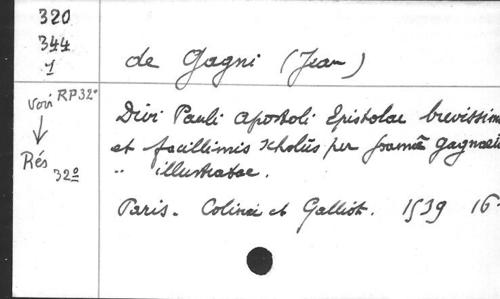 320
344
1
de Gagni (Jean)
Voir RP32°
Rés
32º
Divi Pauli Apostoli Epistolae brevissim
et facillimis scholiis per Joannē Gagnaeiū
" illustratae.
Paris. Colinei et Galliot. 1539 16